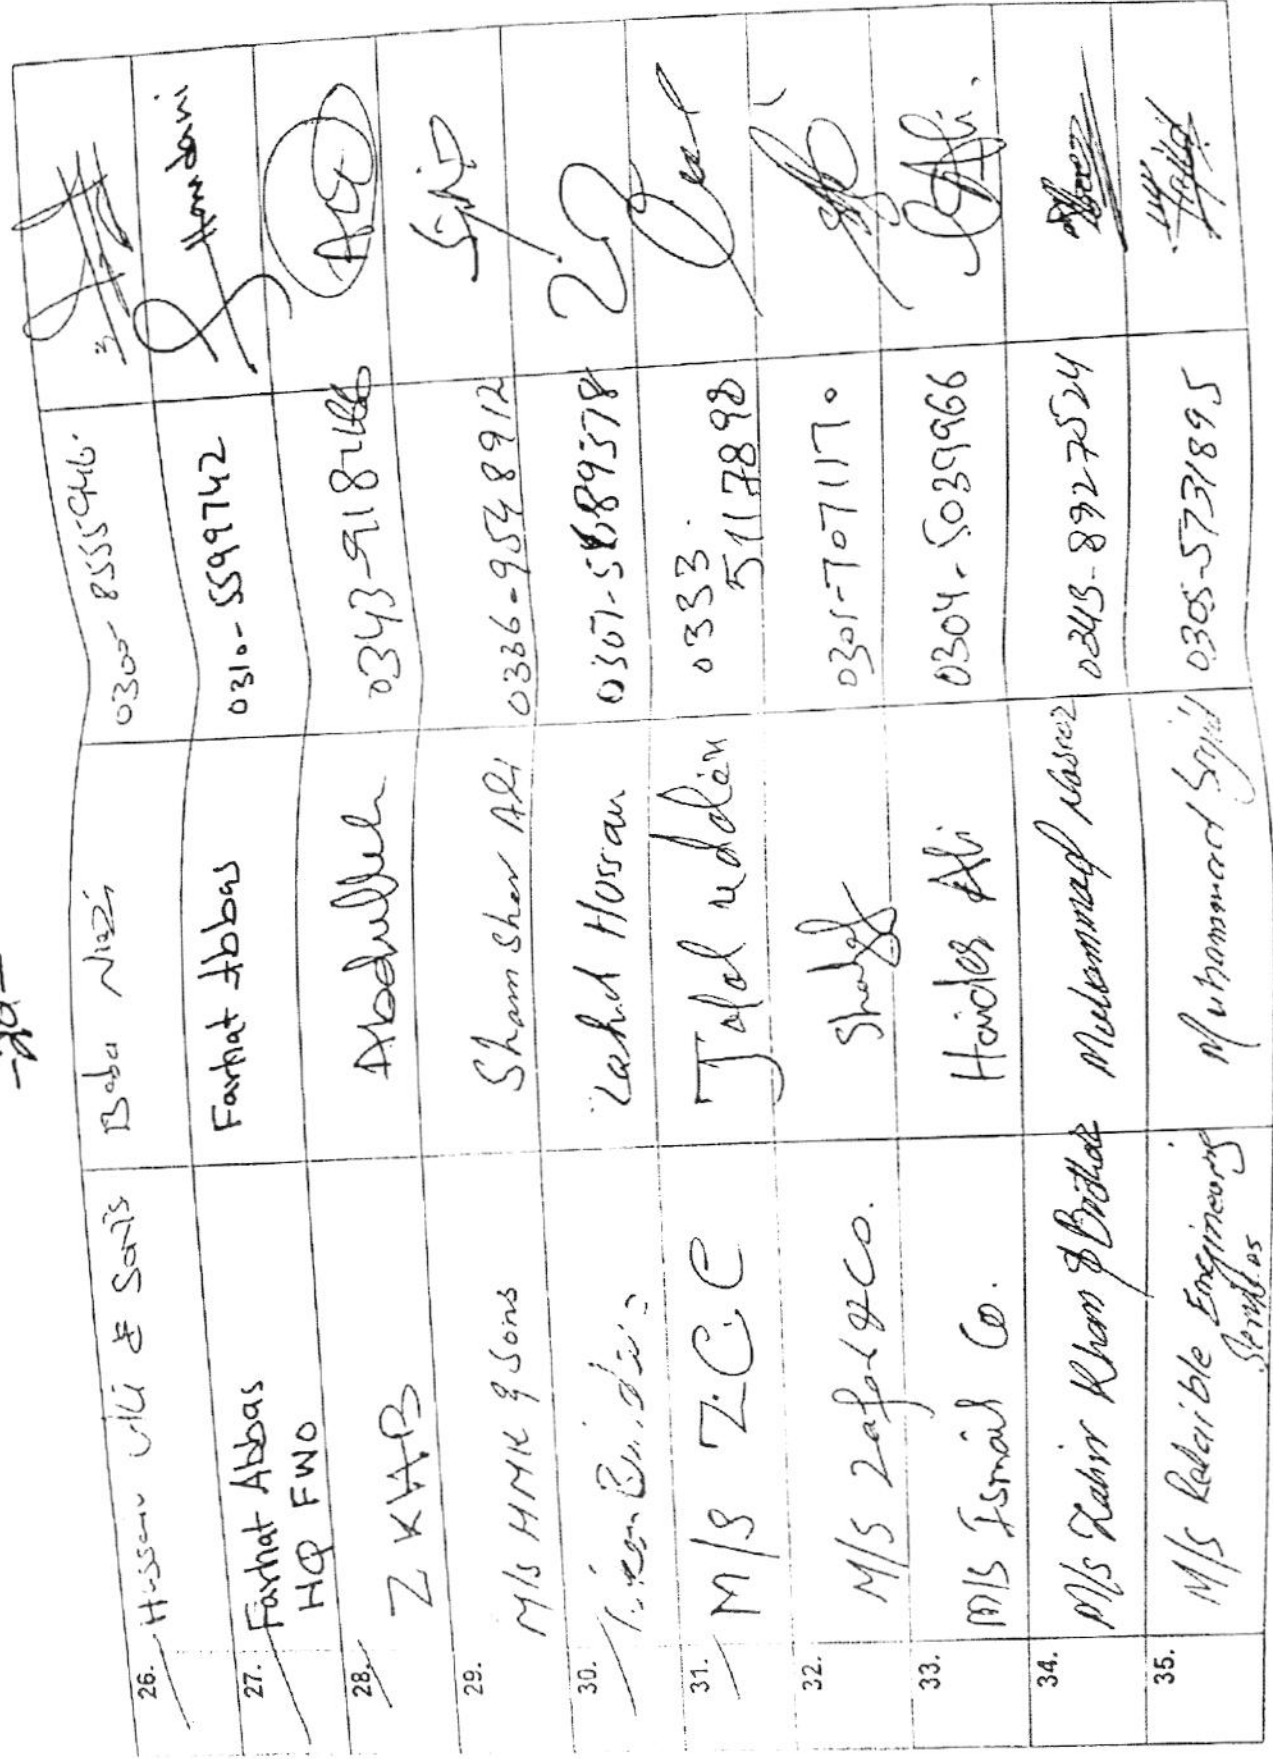 26. Hussain Ali & Sons Babar Niazi 0300-8555946
27. Farhat Abbas Farhat Abbas 0310-5599742 Hamdani
HQ FWO
28. Z KHAB Abdullah 0343-918
29. M/s HMK & Sons Sham Sher Ali 0336-9548912
30. Zahid Hussain
31. M/S Z.C.C Jalal uddin 0333
5117898
32. M/S Zafar & Co. 0301-7071170
33. M/S Ismail Co. Haider Ali 0304-5039966 Ali
34. M/s Zahir Khan & Brother Muhammad 0343-8927524
35. M/s Relaible Engineering Muhammad Sajid 0305-5731895 Sajid
Services